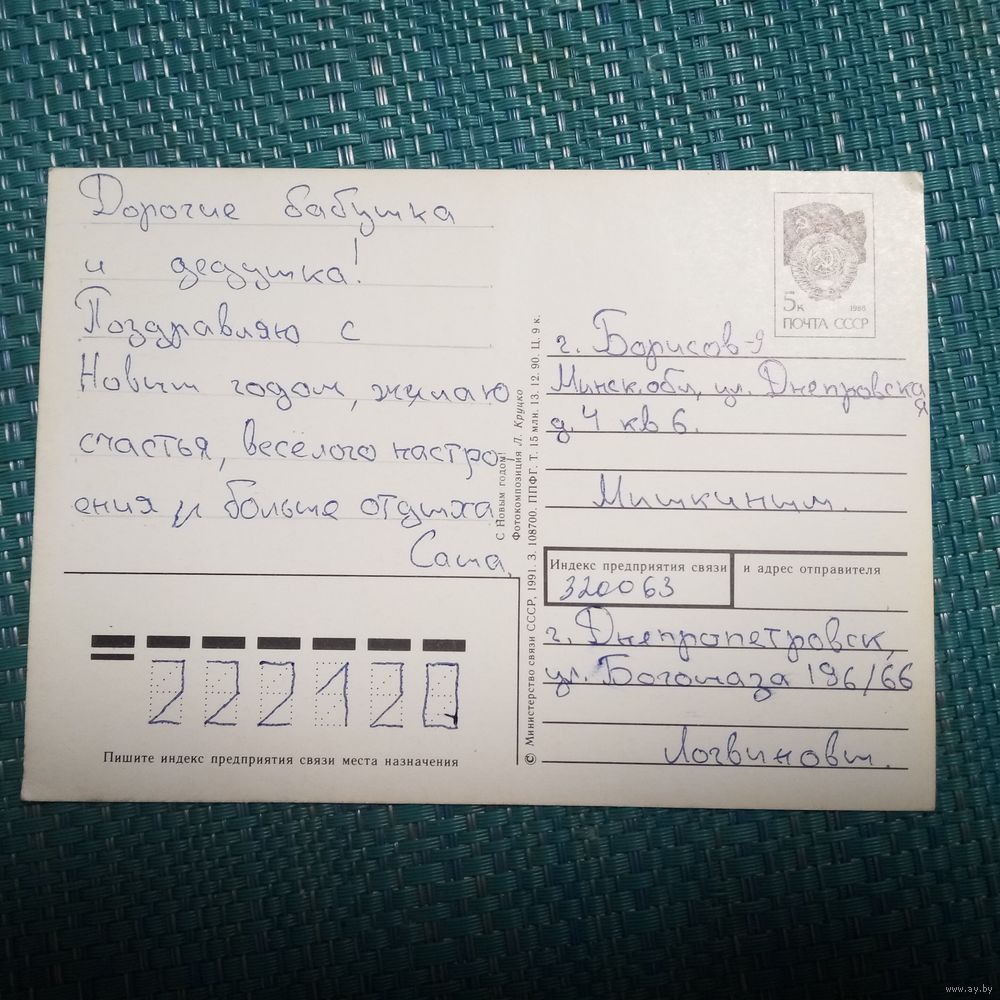 Дорогие бабушка
и дедушка!
Поздравляю с
Новым годом, желаю
счастья, веселого настро
ения и больше отдыха
Саша.
5к
1988
ПОЧТА СССР
г. Борисов-9
Минск.обл, ул. Днепровская
д 4 кв 6.
Мишкиным.
Индекс предприятия связи
и адрес отправителя
320063
г. Днепропетровск,
ул. Богомаза 196/66
Логвиновы.
С Новым годом!
Фотокомпозиция Л. Круцко
© Министерство связи СССР, 1991. З. 108700. ППФГ. Т. 15 млн. 13. 12. 90. Ц. 9 к.
222120
Пишите индекс предприятия связи места назначения
www.ay.by